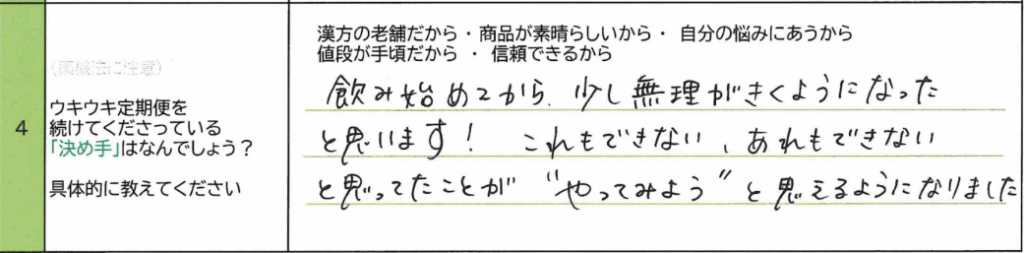 4
(薬機法に注意)
ウキウキ定期便を
続けてくださっている
「決め手」はなんでしょう？
具体的に教えてください
漢方の老舗だから・商品が素晴らしいから・ 自分の悩みにあうから
値段が手頃だから ・ 信頼できるから
飲み始めてから、少し無理がきくようになった
と思います！ これもできない、あれもできない
と思ってたことが “やってみよう” と思えるようになりました